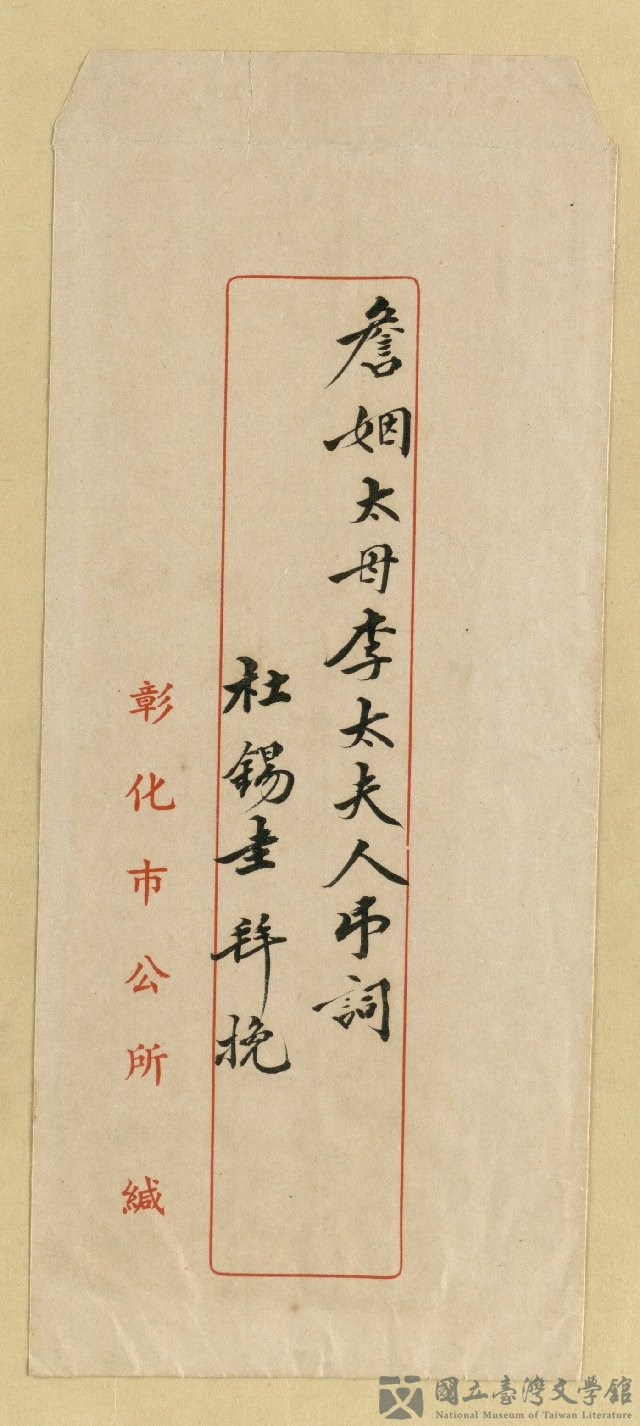 詹姻太母李太夫人弔詞
杜錫圭拜挽
彰化市公所緘
國立臺灣文學館
National Museum of Taiwan Literature